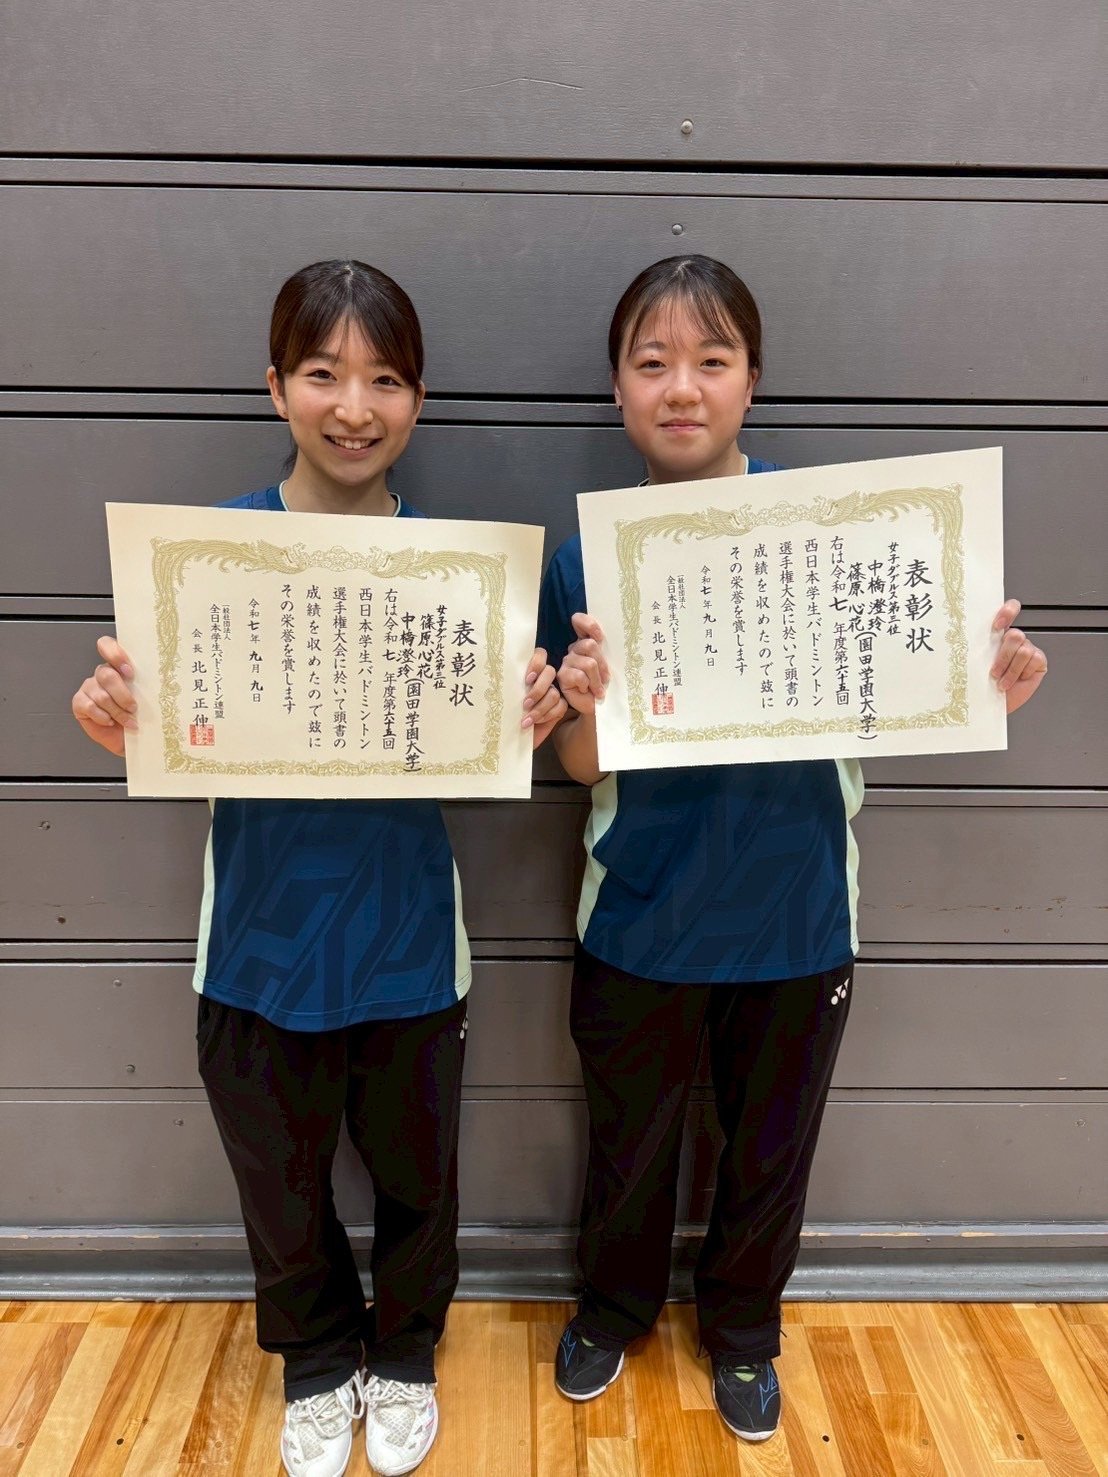 表彰状
女子ダブルス第三位
篠原心花
中橋澄玲(園田学園大学)
右は令和七年度第六十五回
西日本学生バドミントン
選手権大会に於いて頭書の
成績を収めたので茲に
その栄誉を賞します
令和七年九月九日
一般社団法人
全日本学生バドミントン連盟
会長 北見正伸
表彰状
女子ダブルス第三位
中橋澄玲
篠原心花(園田学園大学)
右は令和七年度第六十五回
西日本学生バドミントン
選手権大会に於いて頭書の
成績を収めたので茲に
その栄誉を賞します
令和七年九月九日
一般社団法人
全日本学生バドミントン連盟
会長 北見正伸